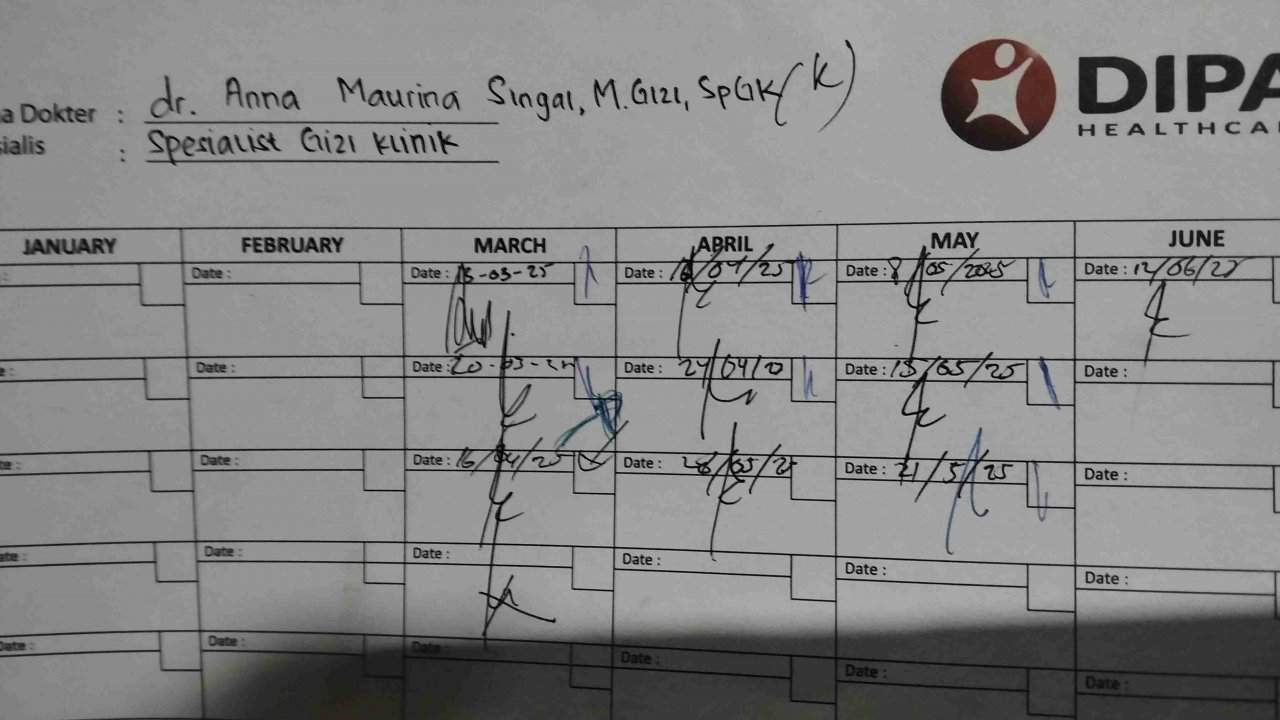 a Dokter : dr. Anna Maurina Singal, M.Gizi, SpGK(K)
ialis : Spesialist Gizi Klinik
DIPA
HEALTHCA
JANUARY FEBRUARY MARCH APRIL MAY JUNE
: Date : Date : 13-03-25 Date : /04/25 Date : 8/05/2025 Date : 12/06/25
e : Date : Date : 20-03-25 Date : 24/04/2 Date : 15/05/25 Date :
te : Date : Date : 16/04/25 Date : 28/05/25 Date : 21/5/25 Date :
ate : Date : Date : Date : Date : Date :
Date : Date : Date : Date : Date : Date :